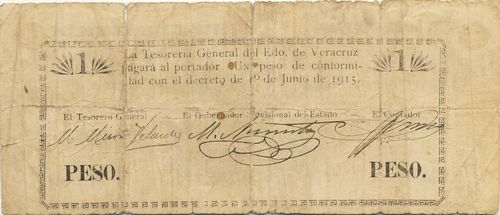 La Tesorería General del Edo. de Veracruz
1 pagará al portador Un peso de conformi- 1
dad con el decreto de 1º de Junio de 1915.
El Tesorero General El Gobernador Provisional del Estado El Contador
PESO. PESO.